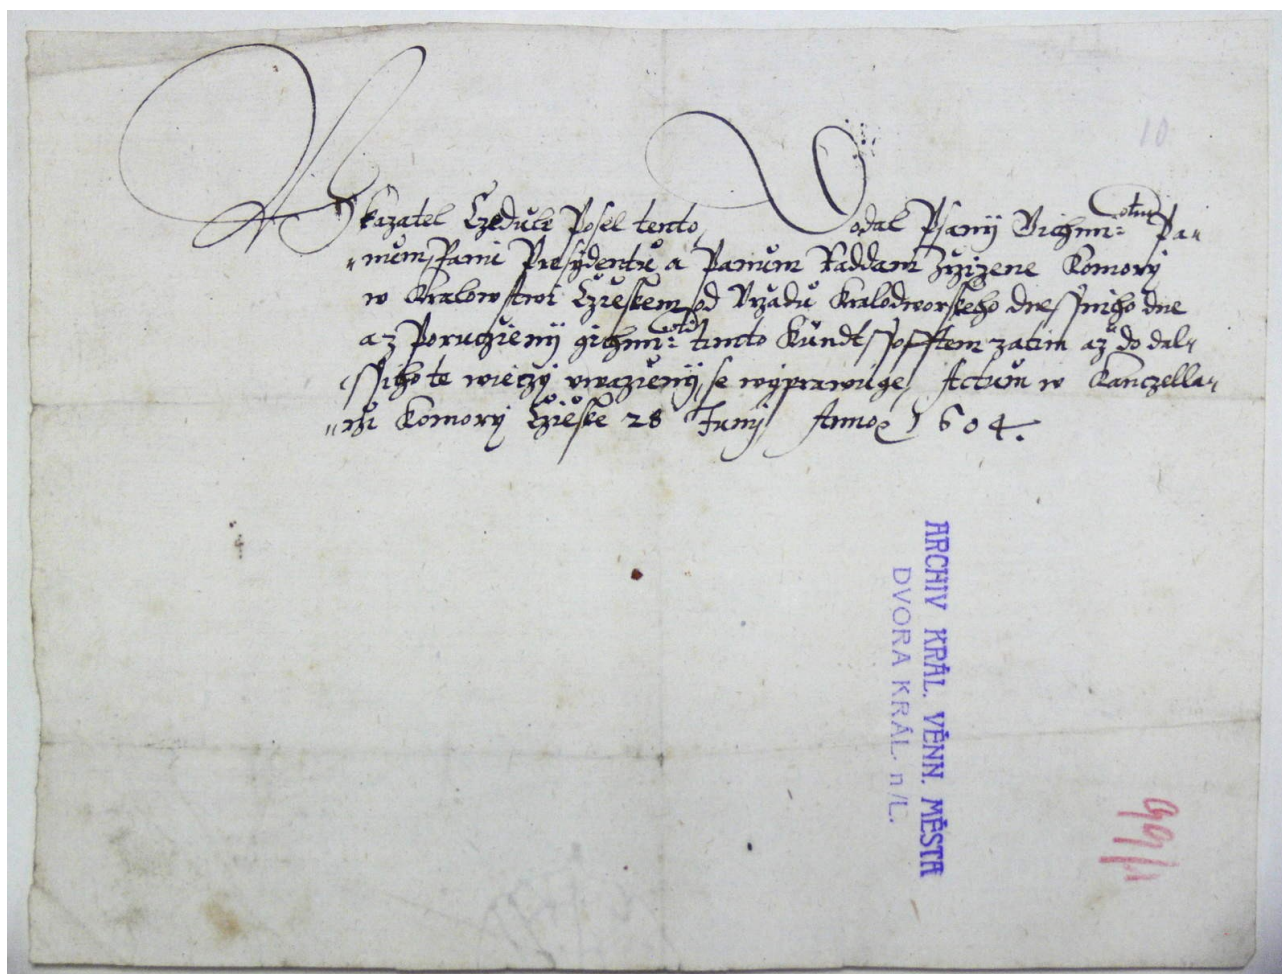 10
Vkazatel Czedule Posel tento, Dodal Psanij Gichmi: otem Pa-
num, Panu Presydentu a Panum Raddam Zrzizene Komory
w Kralowstwi Cžieskem, od Vrzadu Kralodworskeho dnessniho dne
a z Poruczienij gichmi: tij timto Kundtssofftem zatim až do dal-
ssiho te wieczy vwazienij, se wyprawuge, Actum w Kanczella-
rži Komory Cžieske 28 Junij Anno 1604.
ARCHIV KRÁL. VĚNN. MĚSTA
DVORA KRÁL. n/L.
99/1